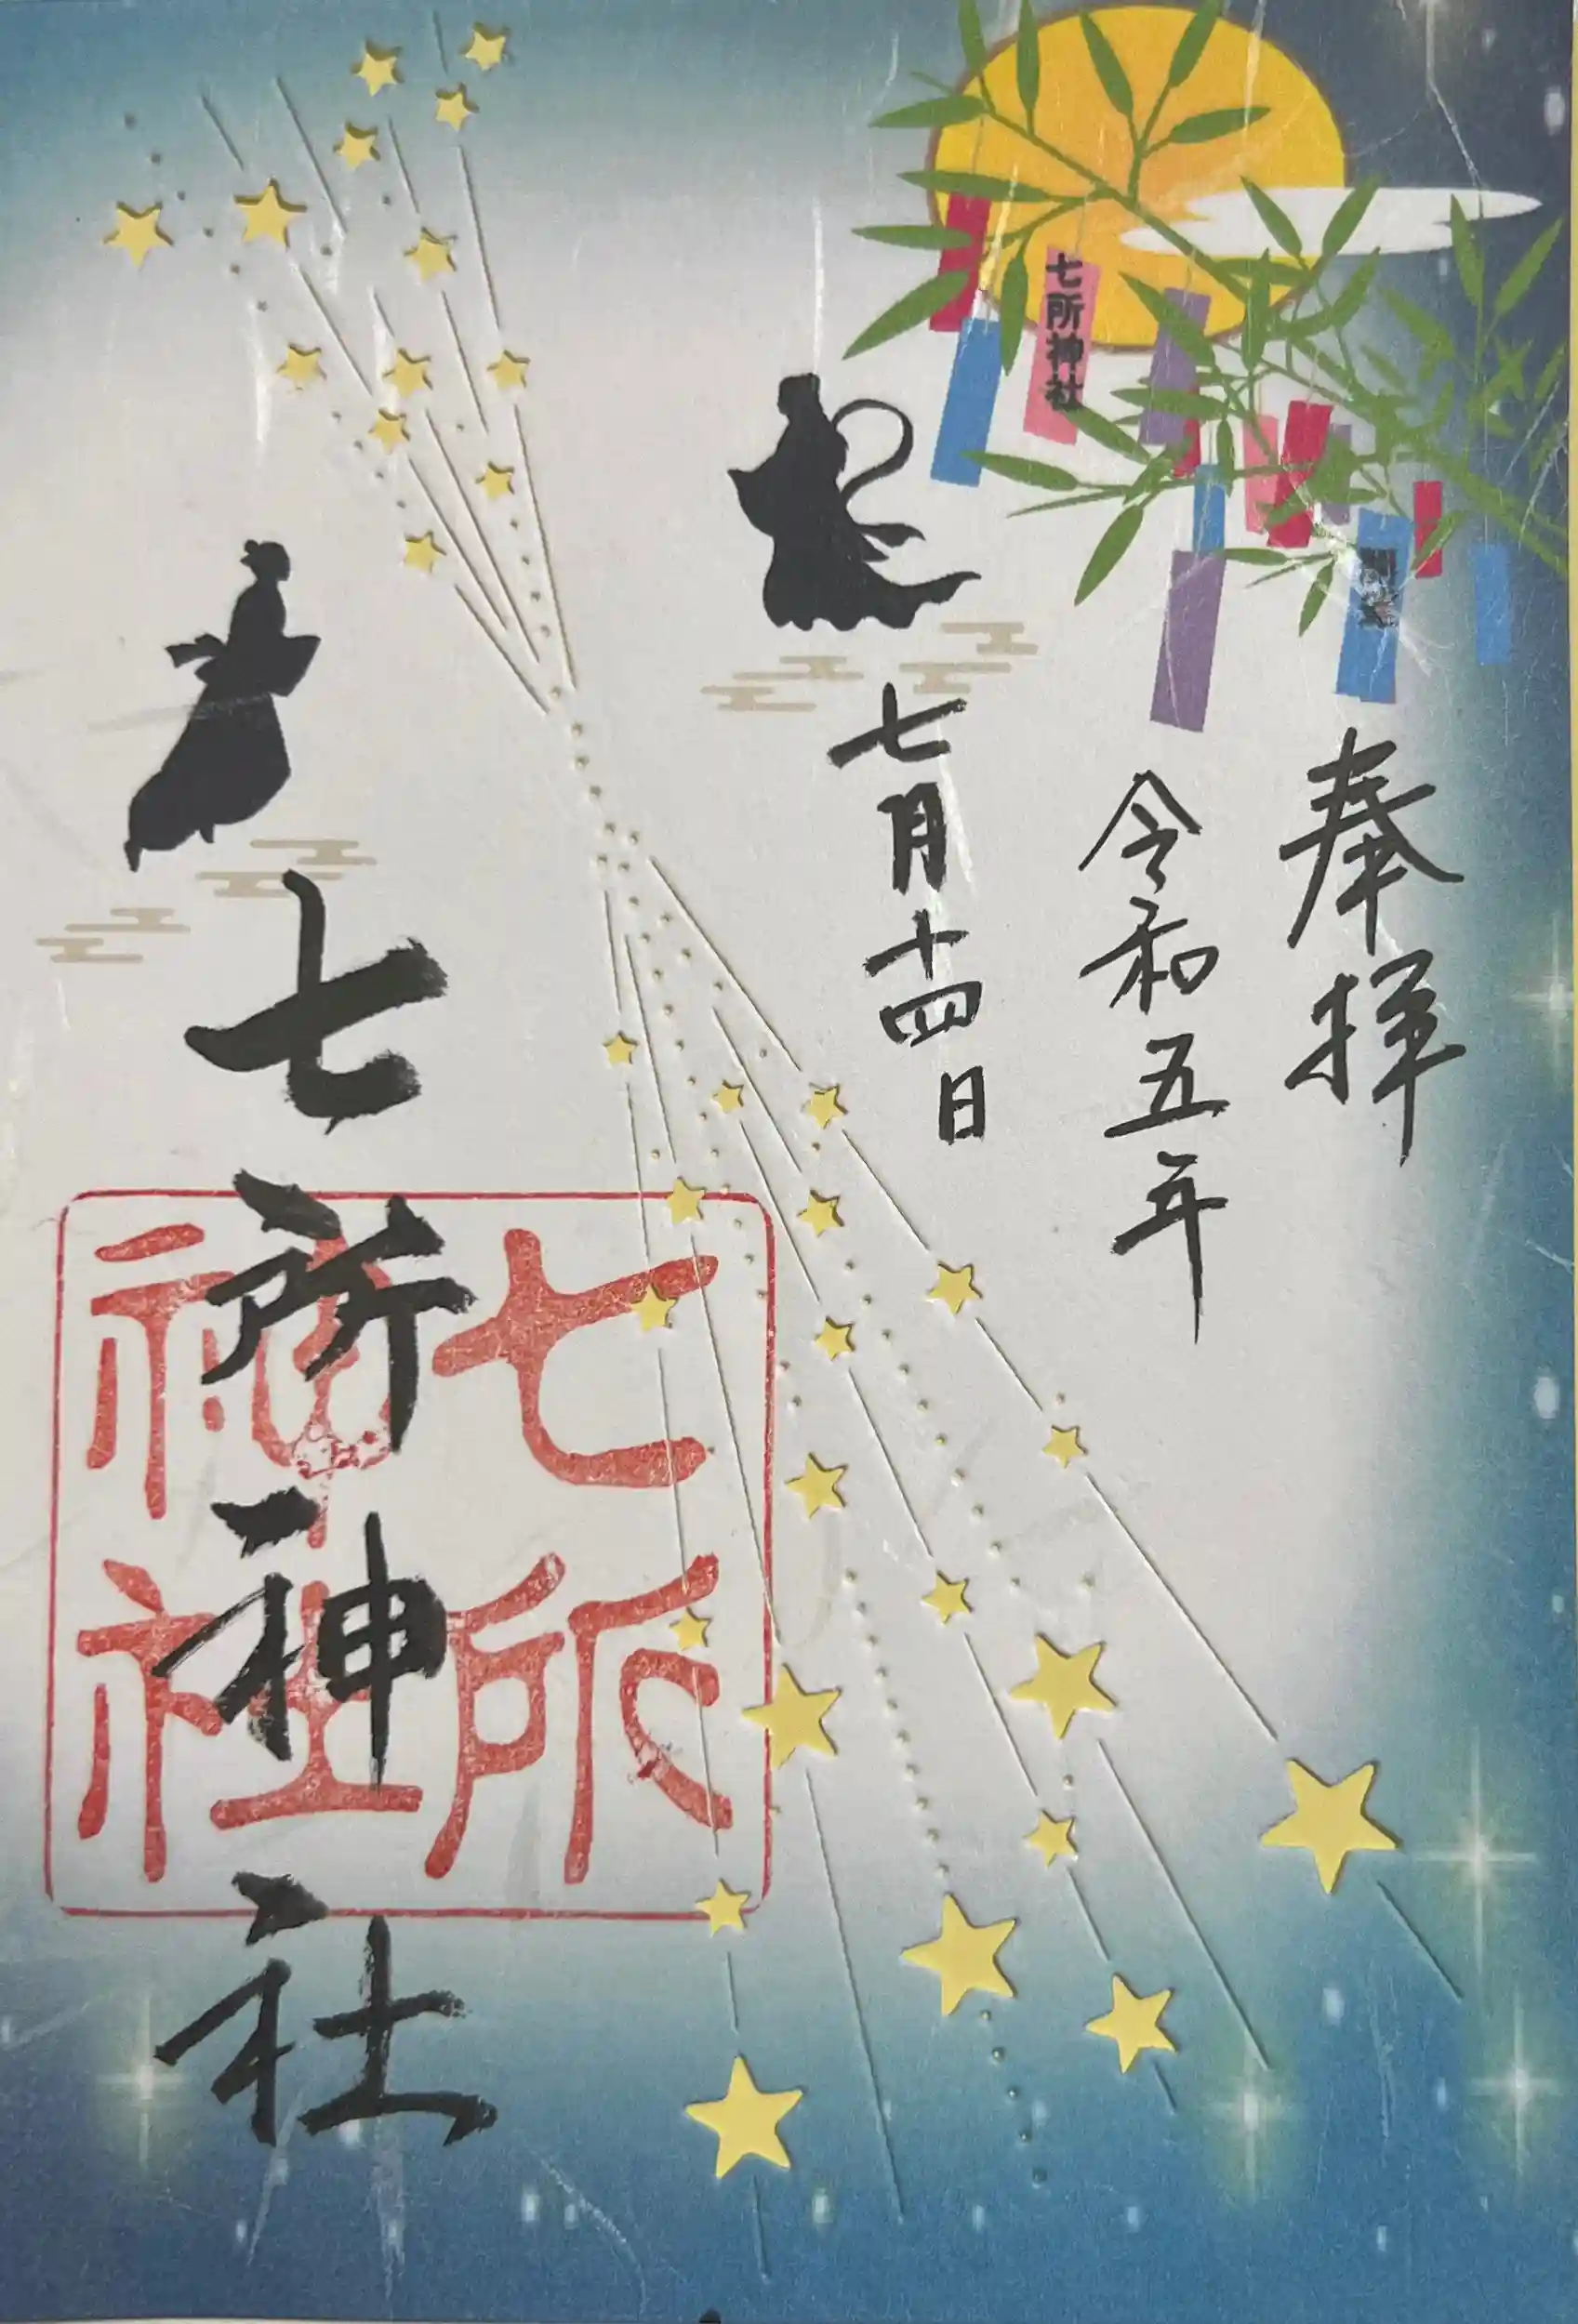 七所神社
奉拝
令和五年
七月十四日
七所神社
七所
神社